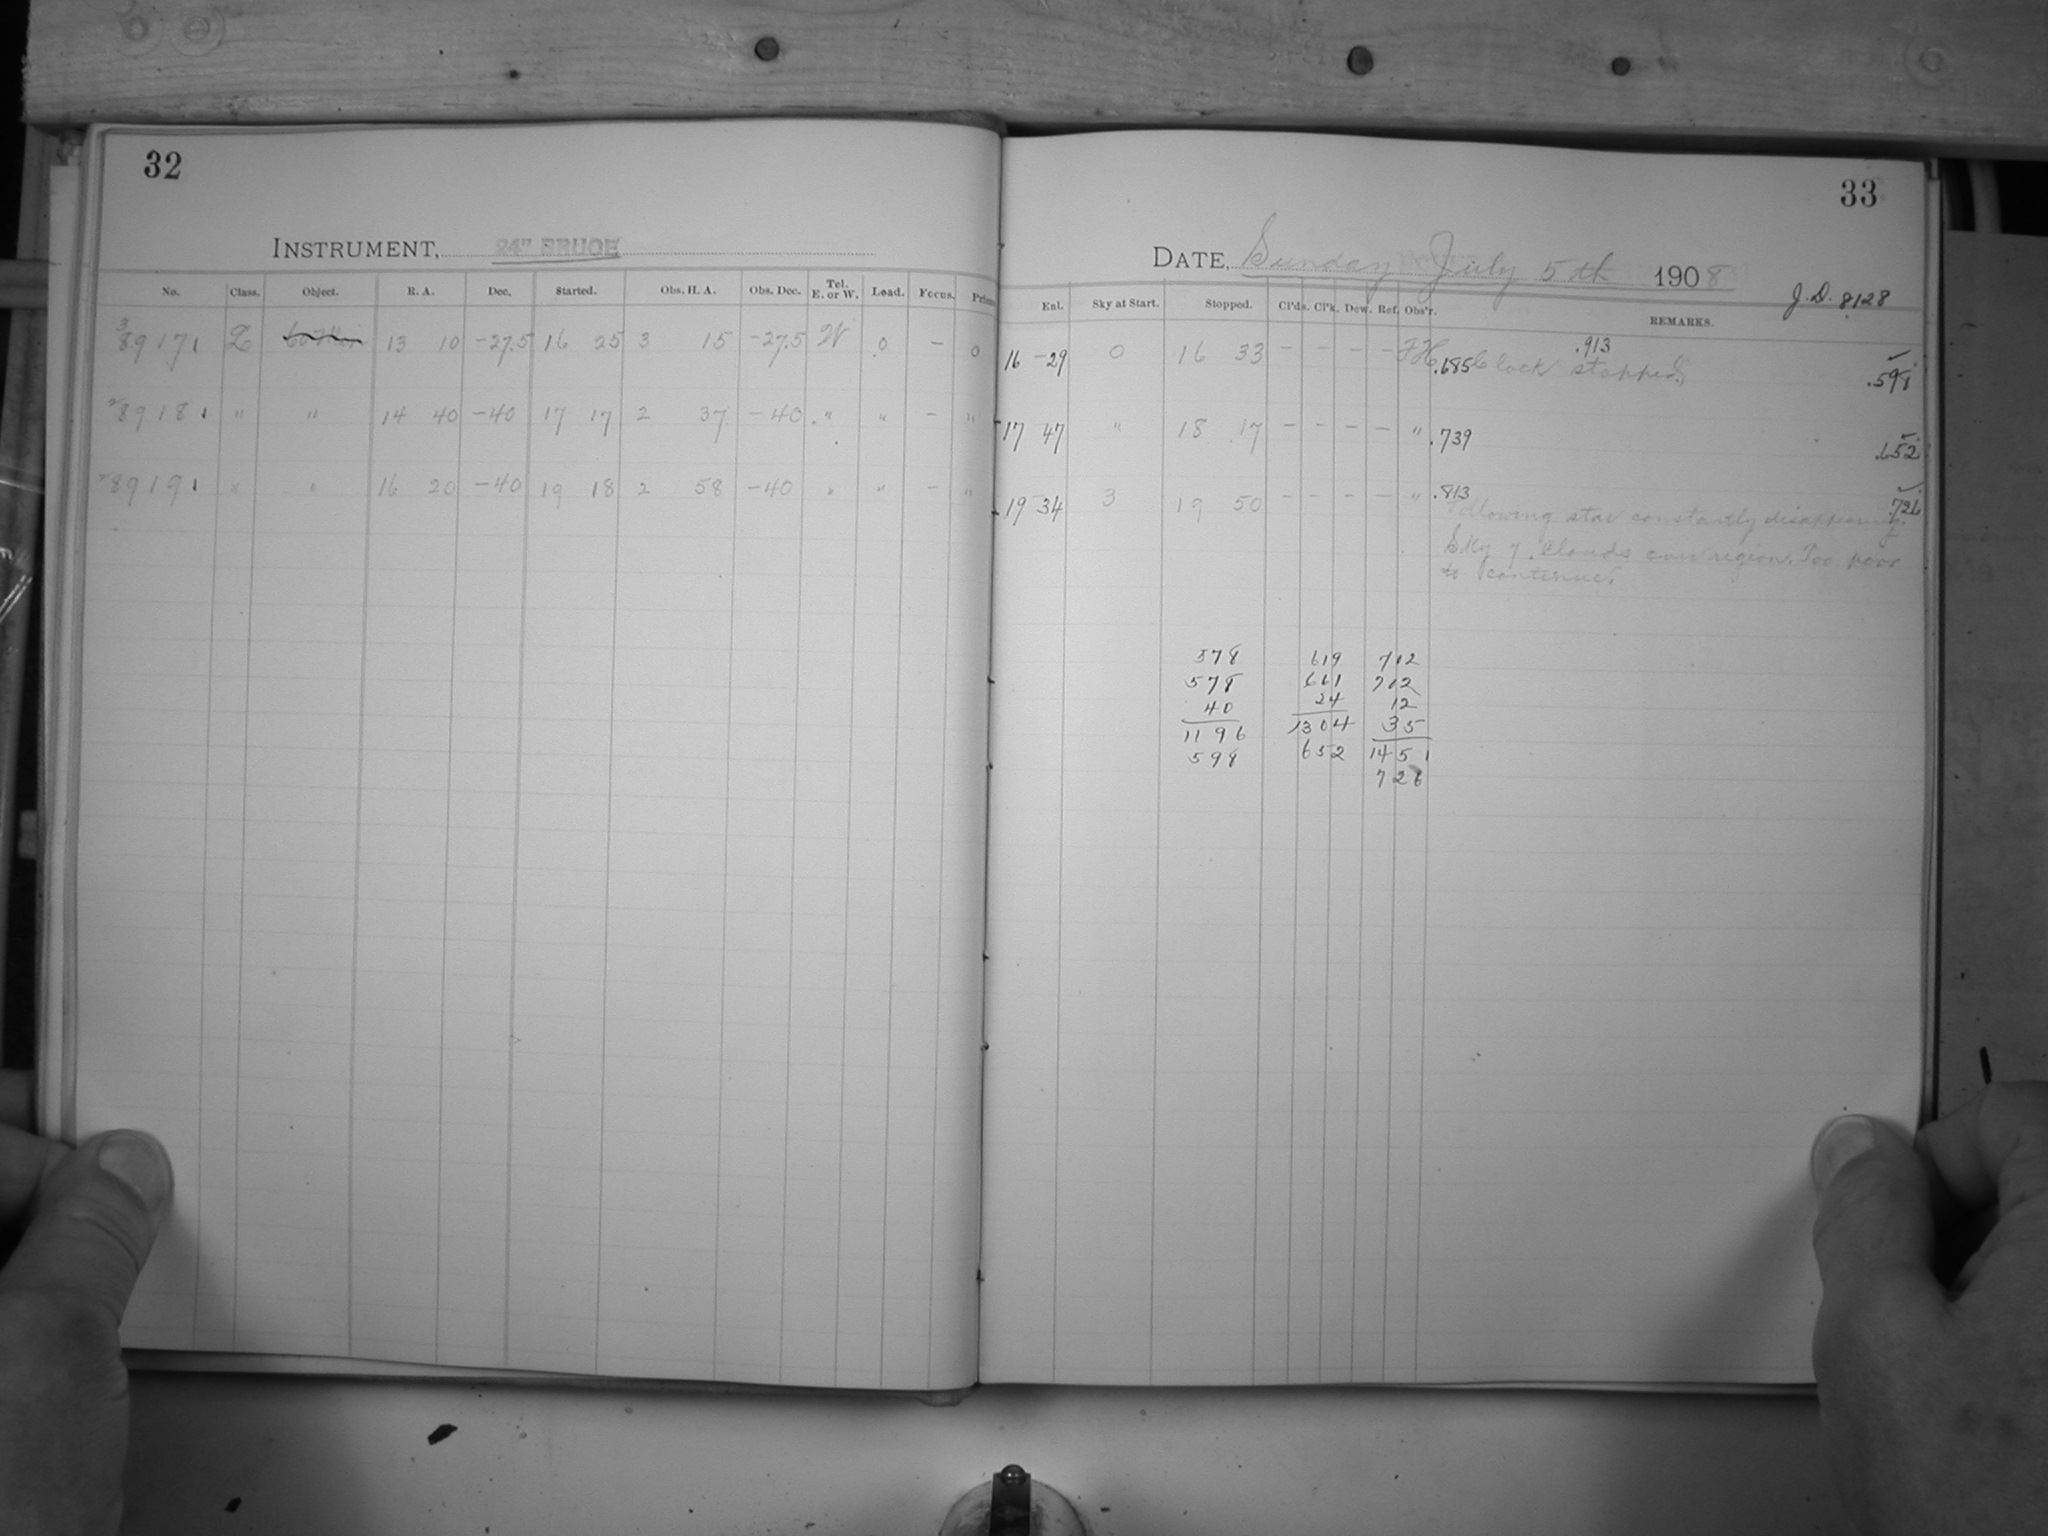 32
INSTRUMENT, 24" BRUCE
No. Class. Object. R. A. Dec. Started. Obs. H. A. Obs. Dec. Tel. E. or W. Load. Focus. Prism
3
89171 L 13 10 -27.5 16 25 3 15 -27.5 W 0 - 0
89181 " " 14 40 -40 17 17 2 37 -40 " " - "
89191 " " 16 20 -40 19 18 2 58 -40 " " - "
33
DATE, Sunday July 5th 1908
J.D. 8128
Ent. Sky at Start. Stopped. Cl'ds. Cl'k. Dew. Ref. Obs'r. REMARKS.
.913
16 -29 0 16 33 - - - - .685 Clock stopped.
17 47 " 18 17 - - - - " .739 .652
19 34 3 19 50 - - - - " .813 .726
Following star constantly disappearing.
Sky 7. Clouds over region. Too poor
to continue.
578 619 712
578 661 712
40 24 12
1196 1304 35
598 652 1451
726